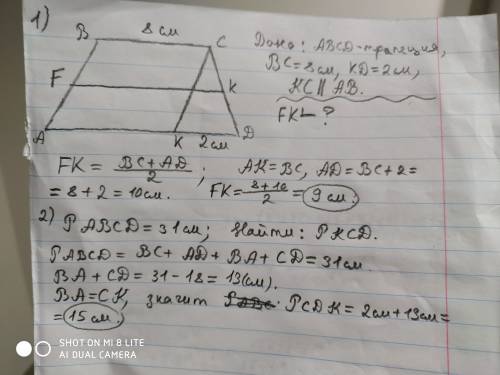 1)
B 8 см C
Дано: ABCD-трапеция,
BC=8см, KD=2см,
KC || AB.
FK - ?
F K
A K 2см D
FK = BC+AD / 2 ; AK=BC, AD=BC+2=
=8+2=10см. FK= 8+10 / 2 = 9см.
2) PABCD=31см; Найти: PKCD.
PABCD = BC+AD+BA+CD=31см.
BA+CD=31-18=13(см).
BA=CK, значит PCDK=2см+13см=
=15см.
SHOT ON MI 8 LITE
AI DUAL CAMERA